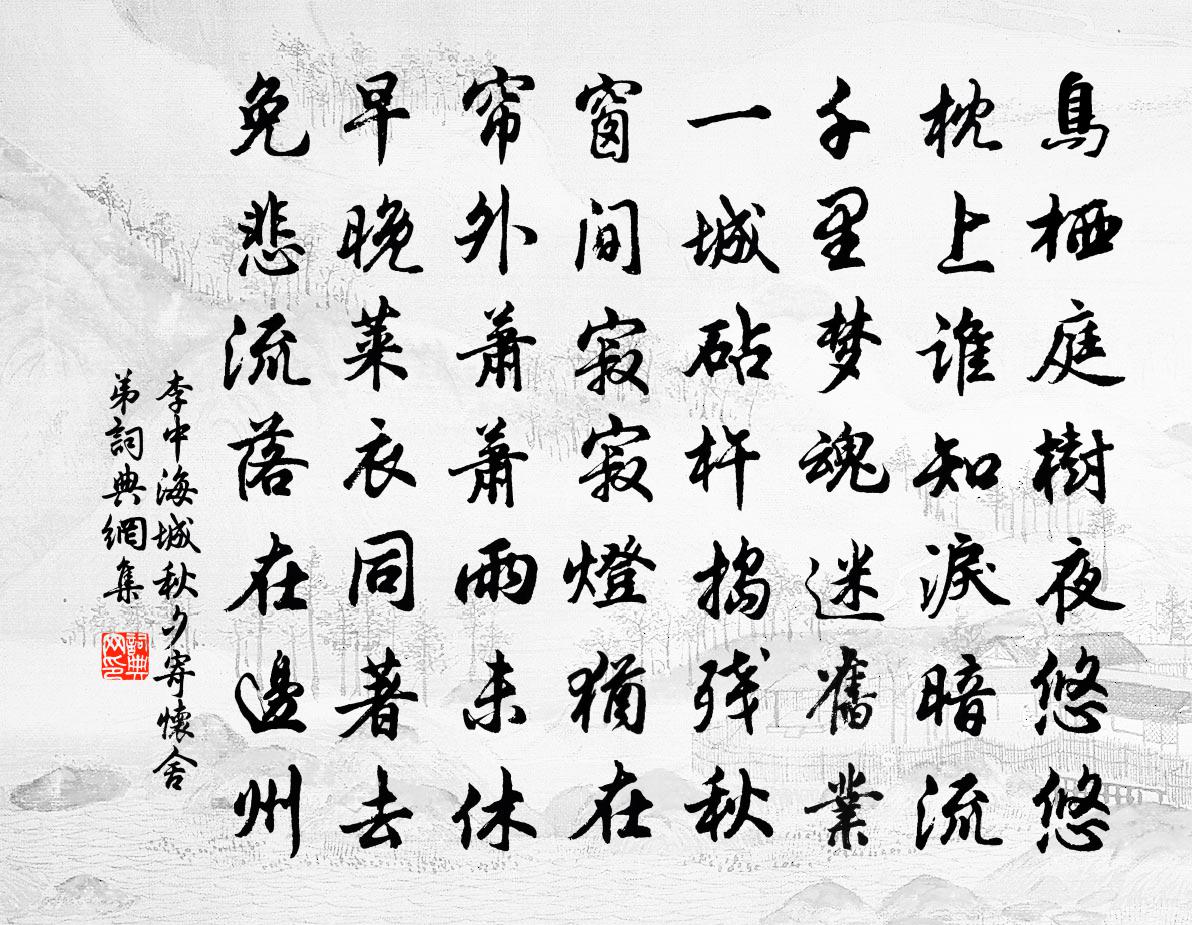 鳥栖庭樹夜悠悠
枕上誰知淚暗流
千里梦魂迷舊業
一城砧杵搗残秋
窗间寂寂燈猶在
帘外萧萧雨未休
早晚莱衣同著去
免悲流落在邊州
李中海城秋夕寄懷舍
弟詞典網集
詞典
网印